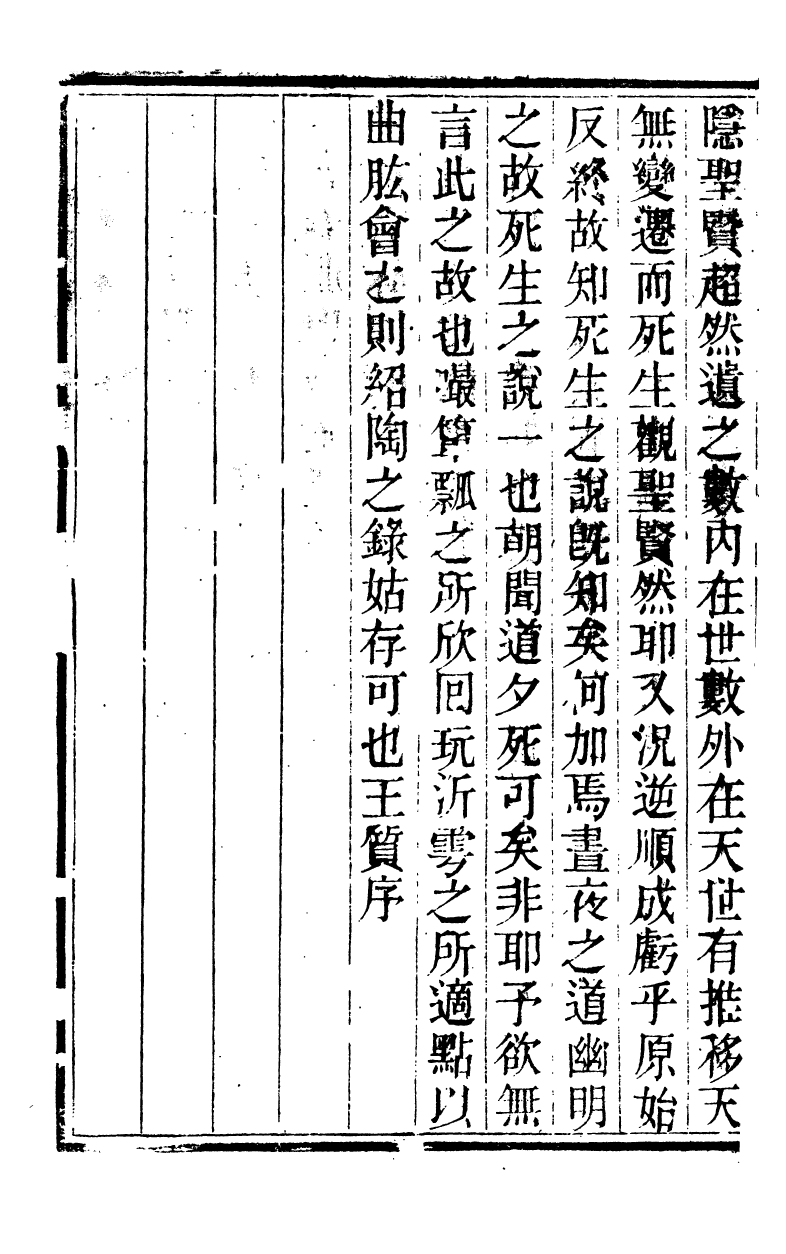 隱聖賢超然遺之數内在世數外在天世有推移天
無變遷而死生觀聖賢然耶又況逆順成虧乎原始
反終故知死生之說旣知矣何加焉晝夜之道幽明
之故死生之說一也朝聞道夕死可矣非耶予欲無
言此之故也撮簞瓢之所欣回玩沂雩之所適點以
曲肱會之則紹陶之錄姑存可也王質序